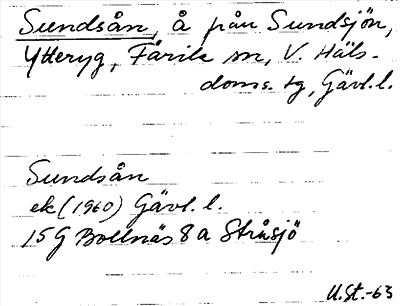 Sundsån, å från Sundsjön,
Ytteryg, Färila sn, V. Häls-
doms. tg, Gävl. l.
Sundsån
ek (1960) Gävl. l.
15G Bollnäs 8a Stråsjö
U.St.-63